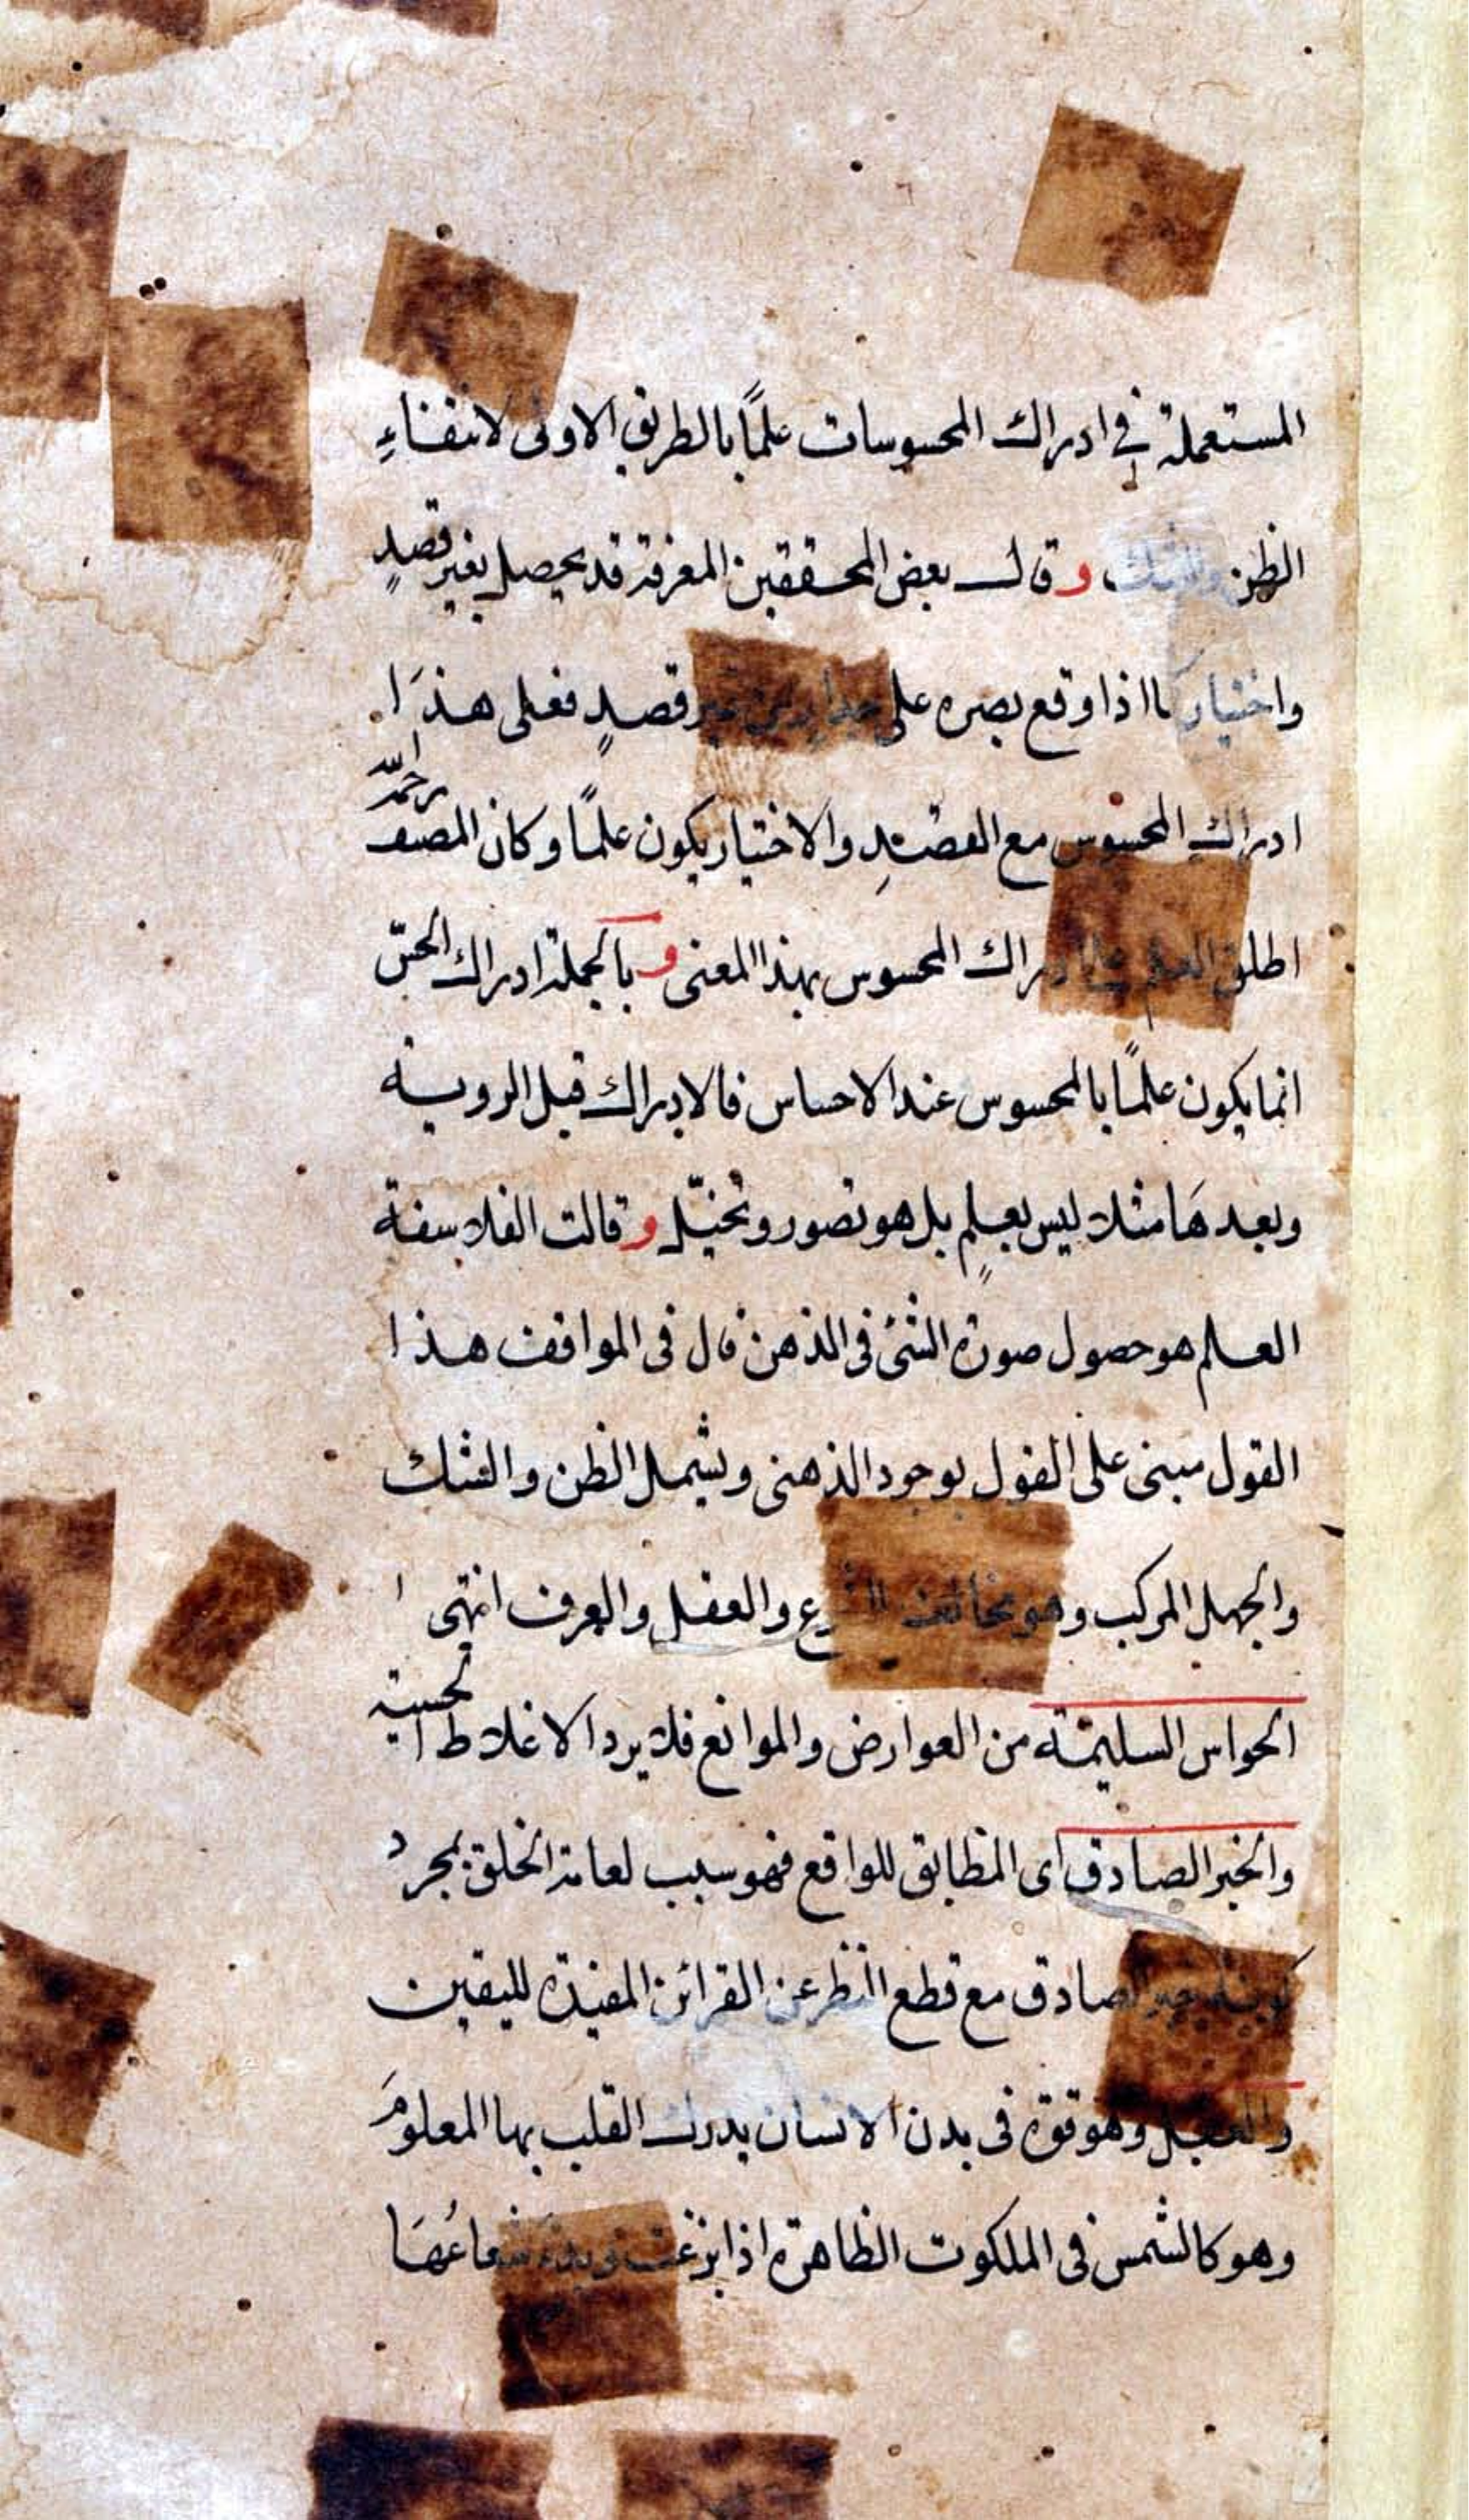 المستعملة في ادراك المحسوسات علمًا بالطريق الاولى لانتفاءِ
الظن والشك وقال بعض المحققين المعرفة قد يحصل بغير قصدٍ
واختيار كما اذا وقع بصره على غير قصدٍ فعلى هذا
ادراك المحسوس مع القصد والاختيار يكون علمًا وكان المصنف رحمه الله
اطلق العلم على ادراك المحسوس بهذا المعنى وبالجملة ادراك الحسّ
انما يكون علمًا بالمحسوس عند الاحساس فالادراك قبل الروية
وبعدها مثلا ليس بعلمٍ بل هو تصور وتخيّل وقالت الفلاسفة
العلم هو حصول صورة الشئ فى الذهن قال فى المواقف هذا
القول مبنى على القول بوجود الذهنى ويشمل الظن والشك
والجهل المركب وهو مخالف الشرع والعقل والعرف انتهى ا
الحواس السليمة من العوارض والموانع فلا يرد الاغلاط الحسية
والخبر الصادق اى المطابق للواقع فهو سبب لعامة الخلق بمجرد
كونه خبر الصادق مع قطع النظر عن القرائن المفيدة لليقين
والعقل وهو قوة فى بدن الانسان يدرك القلب بها المعلومَ
وهو كالشمس فى الملكوت الظاهرة اذا بزغت شعاعُهَا